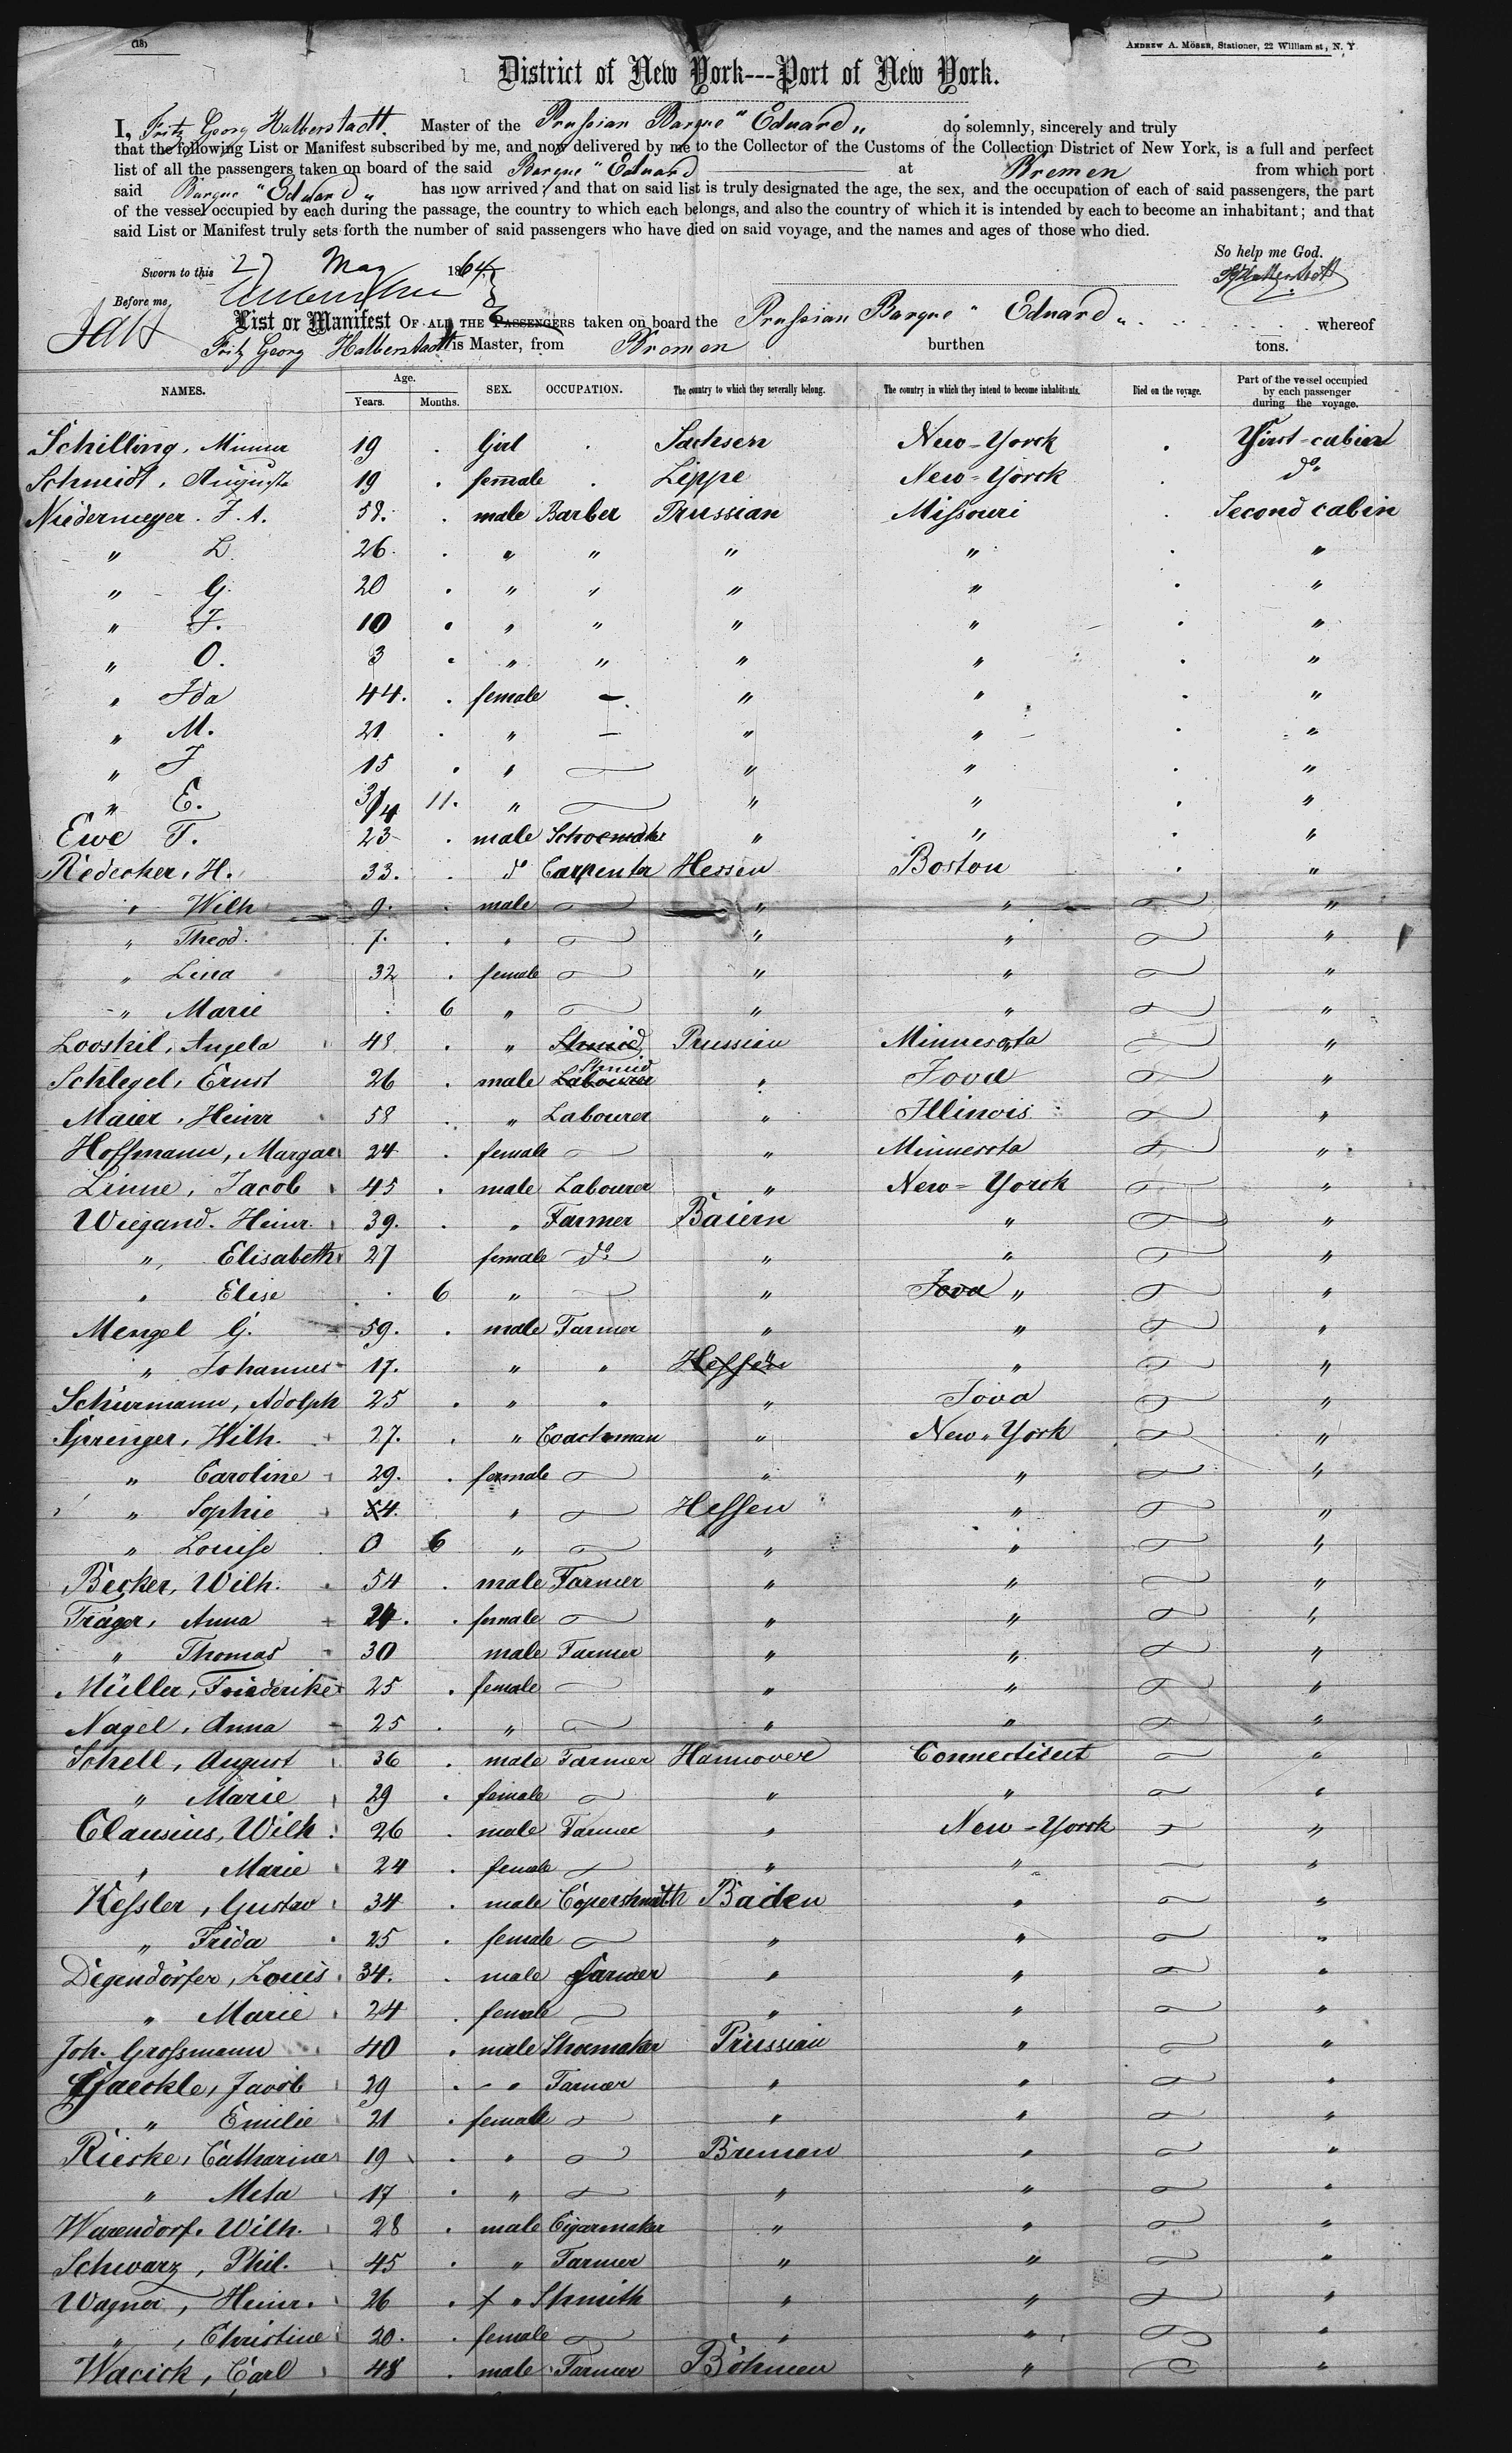 (18)
ANDREW A. MÖSER, Stationer, 22 William st, N. Y
District of New York---Port of New York.
I, Fritz Georg Halberstadt. Master of the Prussian Barque "Eduard„ do solemnly, sincerely and truly
that the following List or Manifest subscribed by me, and now delivered by me to the Collector of the Customs of the Collection District of New York, is a full and perfect
list of all the passengers taken on board of the said Barque "Eduard at Bremen from which port
said Barque "Eduard„ has now arrived; and that on said list is truly designated the age, the sex, and the occupation of each of said passengers, the part
of the vessel occupied by each during the passage, the country to which each belongs, and also the country of which it is intended by each to become an inhabitant; and that
said List or Manifest truly sets forth the number of said passengers who have died on said voyage, and the names and ages of those who died.
So help me God.
Sworn to this 27 May 1864
Before me
List or Manifest OF ALL THE PASSENGERS taken on board the Prussian Barque "Eduard„ whereof
Fritz Georg Halberstadt is Master, from Bremen burthen tons.
NAMES. Age. Years. Months. SEX. OCCUPATION. The country to which they severally belong. The country in which they intend to become inhabitants. Died on the voyage. Part of the vessel occupied by each passenger during the voyage.
Schilling, Minna 19 Girl Sachsen New-Yorck First-cabin
Schmidt, Augusta 19 female Lippe New-Yorck do
Niedermeyer. F. A. 58. male Barber Prussian Missouri Second cabin
" L. 26. " " " " "
" G. 20 " " " " "
" F. 10 " " " " "
" O. 3 " " " " "
" Ida 44. female - " " "
" M. 21 " - " " "
" F 15 " " " "
" E. 3/4 11. " " " "
Ewe T. 23 male Schoemaker " " "
Redecker, H. 33. do Carpenter Hessen Boston "
" Wilh 9. male " " "
" Theod. 7. " " " "
" Lina 32 female " " "
" Marie 6 " " " "
Looskil, Angela 48 " Shmid Prussian Minnesota "
Schlegel, Ernst 26 male Labourer Shmid " Jova "
Maier, Heinr 58 " Labourer " Illinois "
Hoffmann, Margar 24 female " Minnesota "
Linne, Jacob 45 male Labourer " New-Yorck "
Wiegand. Heinr. 39. " Farmer Baiern " "
" Elisabeth 27 female do " " "
" Elise 6 " " Jova " "
Mengel G. 59. male Farmer " " "
" Johannes 17. " " Hessen " " "
Schürmann, Adolph 25 " " " Jova "
Sprenger, Wilh. 27. " Coachman " New-York "
" Caroline 29. female " " "
" Sophie 54. " Hessen " "
" Louise 0 6 " " " "
Becker, Wilh. 54 male Farmer " " "
Träger, Anna 24. female " " "
" Thomas 30 male Farmer " " "
Müller, Friederike 25 female " " "
Nagel, Anna 25 " " " "
Schell, August 36 male Farmer Hannover Connecticut "
" Marie 29 female " " "
Clausius, Wilh. 26 male Farmer " New-Yorck "
" Marie 24 female " " "
Kessler, Gustav 34 male Copershmith Baden " "
" Frida 25 female " " "
Degendörfer, Louis 34. male farmer " " "
" Marie 24 female " " "
Joh. Grossmann 40 male Shoemaker Prussian " "
Gaeckle, Jacob 29 " Farmer " " "
" Emilie 21 female " " "
Rieske, Catharina 19 " Bremen " "
" Meta 17 " " " "
Warendorf. Wilh. 28 male Cigarmaker " " "
Schwarz, Phil. 45 " Farmer " " "
Wagner, Heinr. 26 " Shmith " " "
" , Christine 20. female " " "
Wacick, Carl 48 male Farmer Böhmen " "